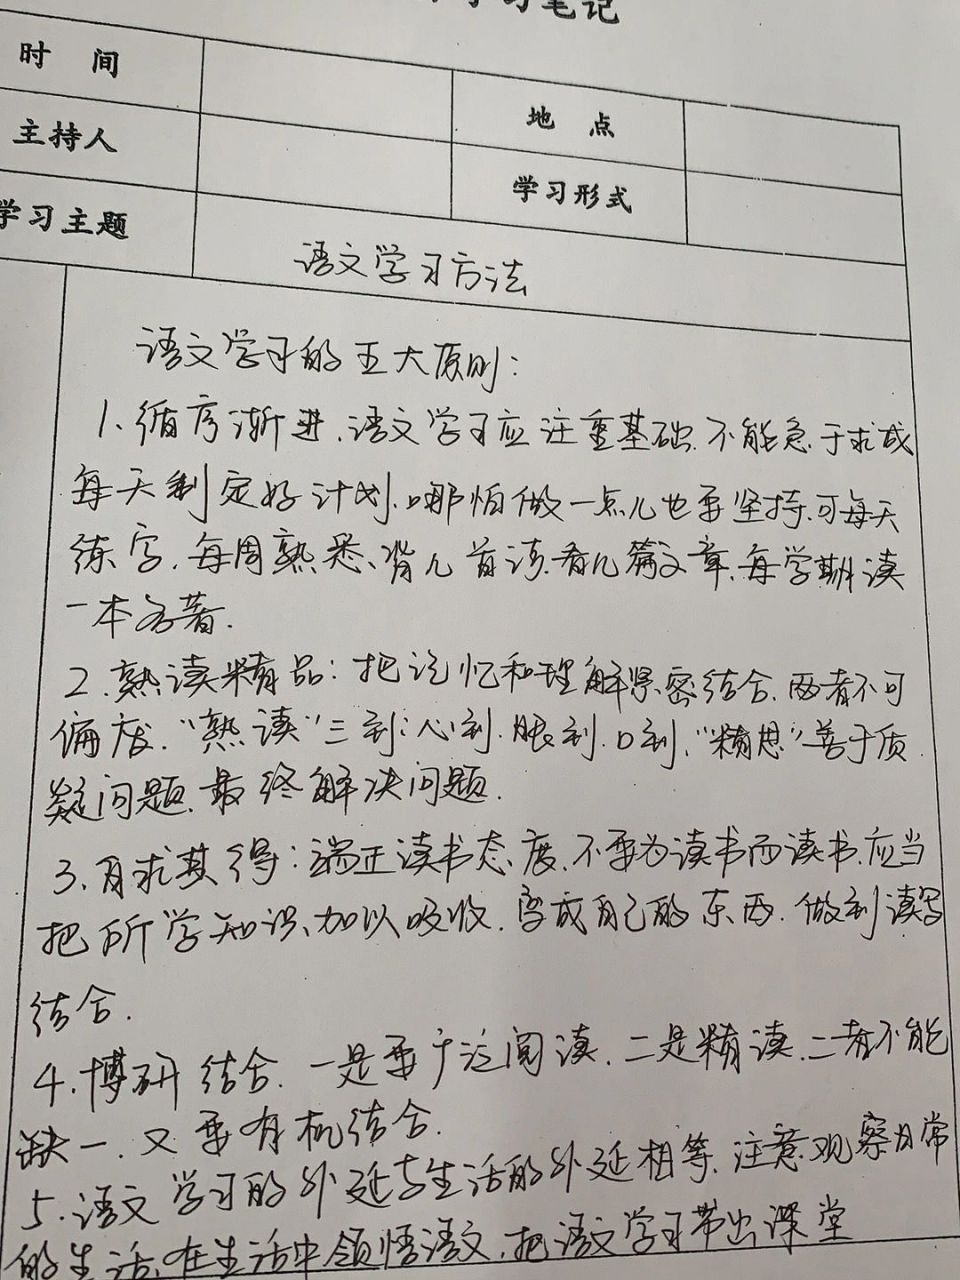 学习笔记
时 间
地 点
主持人
学习形式
学习主题
语文学习方法
语文学习的五大原则：
1、循序渐进.语文学习应注重基础.不能急于求成
每天制定好计划.哪怕做一点儿也要坚持.可每天
练字.每周熟悉、背几首诗.看几篇文章.每学期读
一本名著.
2.熟读精品：把记忆和理解紧密结合.两者不可
偏废."熟读"三到：心到.眼到.口到."精思"善于质
疑问题.最终解决问题.
3.自求其得：端正读书态度.不要为读书而读书.应当
把所学知识.加以吸收.变成自己的东西.做到读写
结合.
4.博研结合.一是要广泛阅读.二是精读.二者不能
缺一.又要有机结合.
5.语文学习的外延与生活的外延相等.注意观察日常
的生活.在生活中领悟语文.把语文学习带出课堂